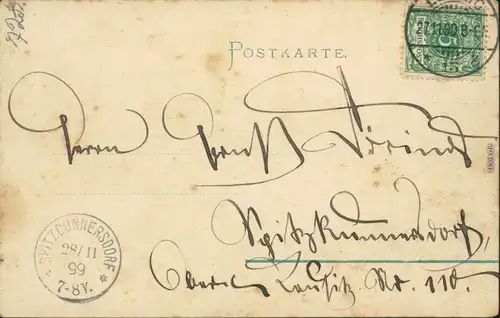 POSTKARTE.
27.11.99.8-9.
Herrn Ernst
Spitzkunnersdorf,
Ober Lausitz Nr. 110.
SPITZCUNNERSDORF
28/11
99
7-8V.